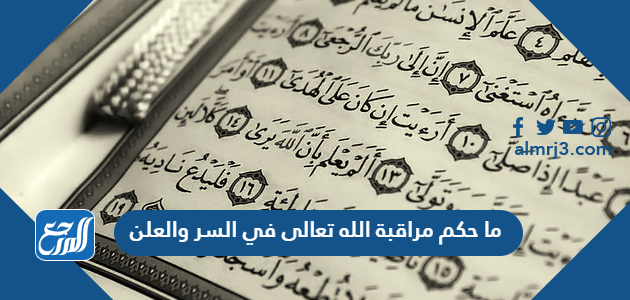 عَلَّمَ ٱلْإِنسَٰنَ مَا لَمْ
٤
٦ رَّءَاهُ ٱسْتَغْنَىٰٓ ٧ إِنَّ إِلَىٰ رَبِّكَ ٱلرُّجْعَىٰٓ ٨ أَرَءَيْتَ
عَبْدًا إِذَا صَلَّىٰٓ ١٠ أَرَءَيْتَ إِن كَانَ عَلَى ٱلْهُدَىٰٓ ١١ أَوْ أَمَرَ
وَتَوَلَّىٰٓ ١٣ أَلَمْ يَعْلَم بِأَنَّ ٱللَّهَ يَرَىٰ ١٤ كَلَّا لَئِن
١٥
١٦ فَلْيَدْعُ نَادِيَهُۥ
تُطِعْهُ وَٱسْجُدْ
١٩
almrj3.com
ما حكم مراقبة الله تعالى في السر والعلن
المرجع